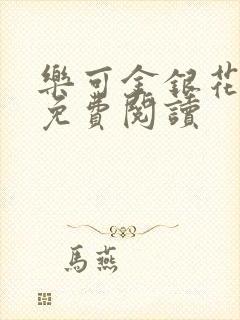 樂可金銀花
免費閱讀
馬燕